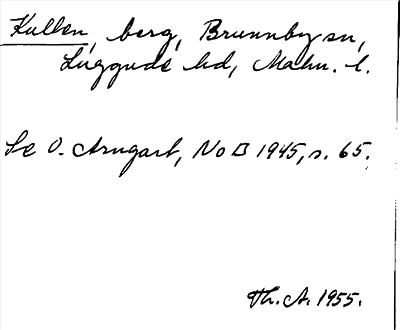 Kullen, berg, Brunnby sn,
Luggude hd, Malm. l.
Se O. Arngart, NoB 1945, s. 65.
Th. A. 1955.